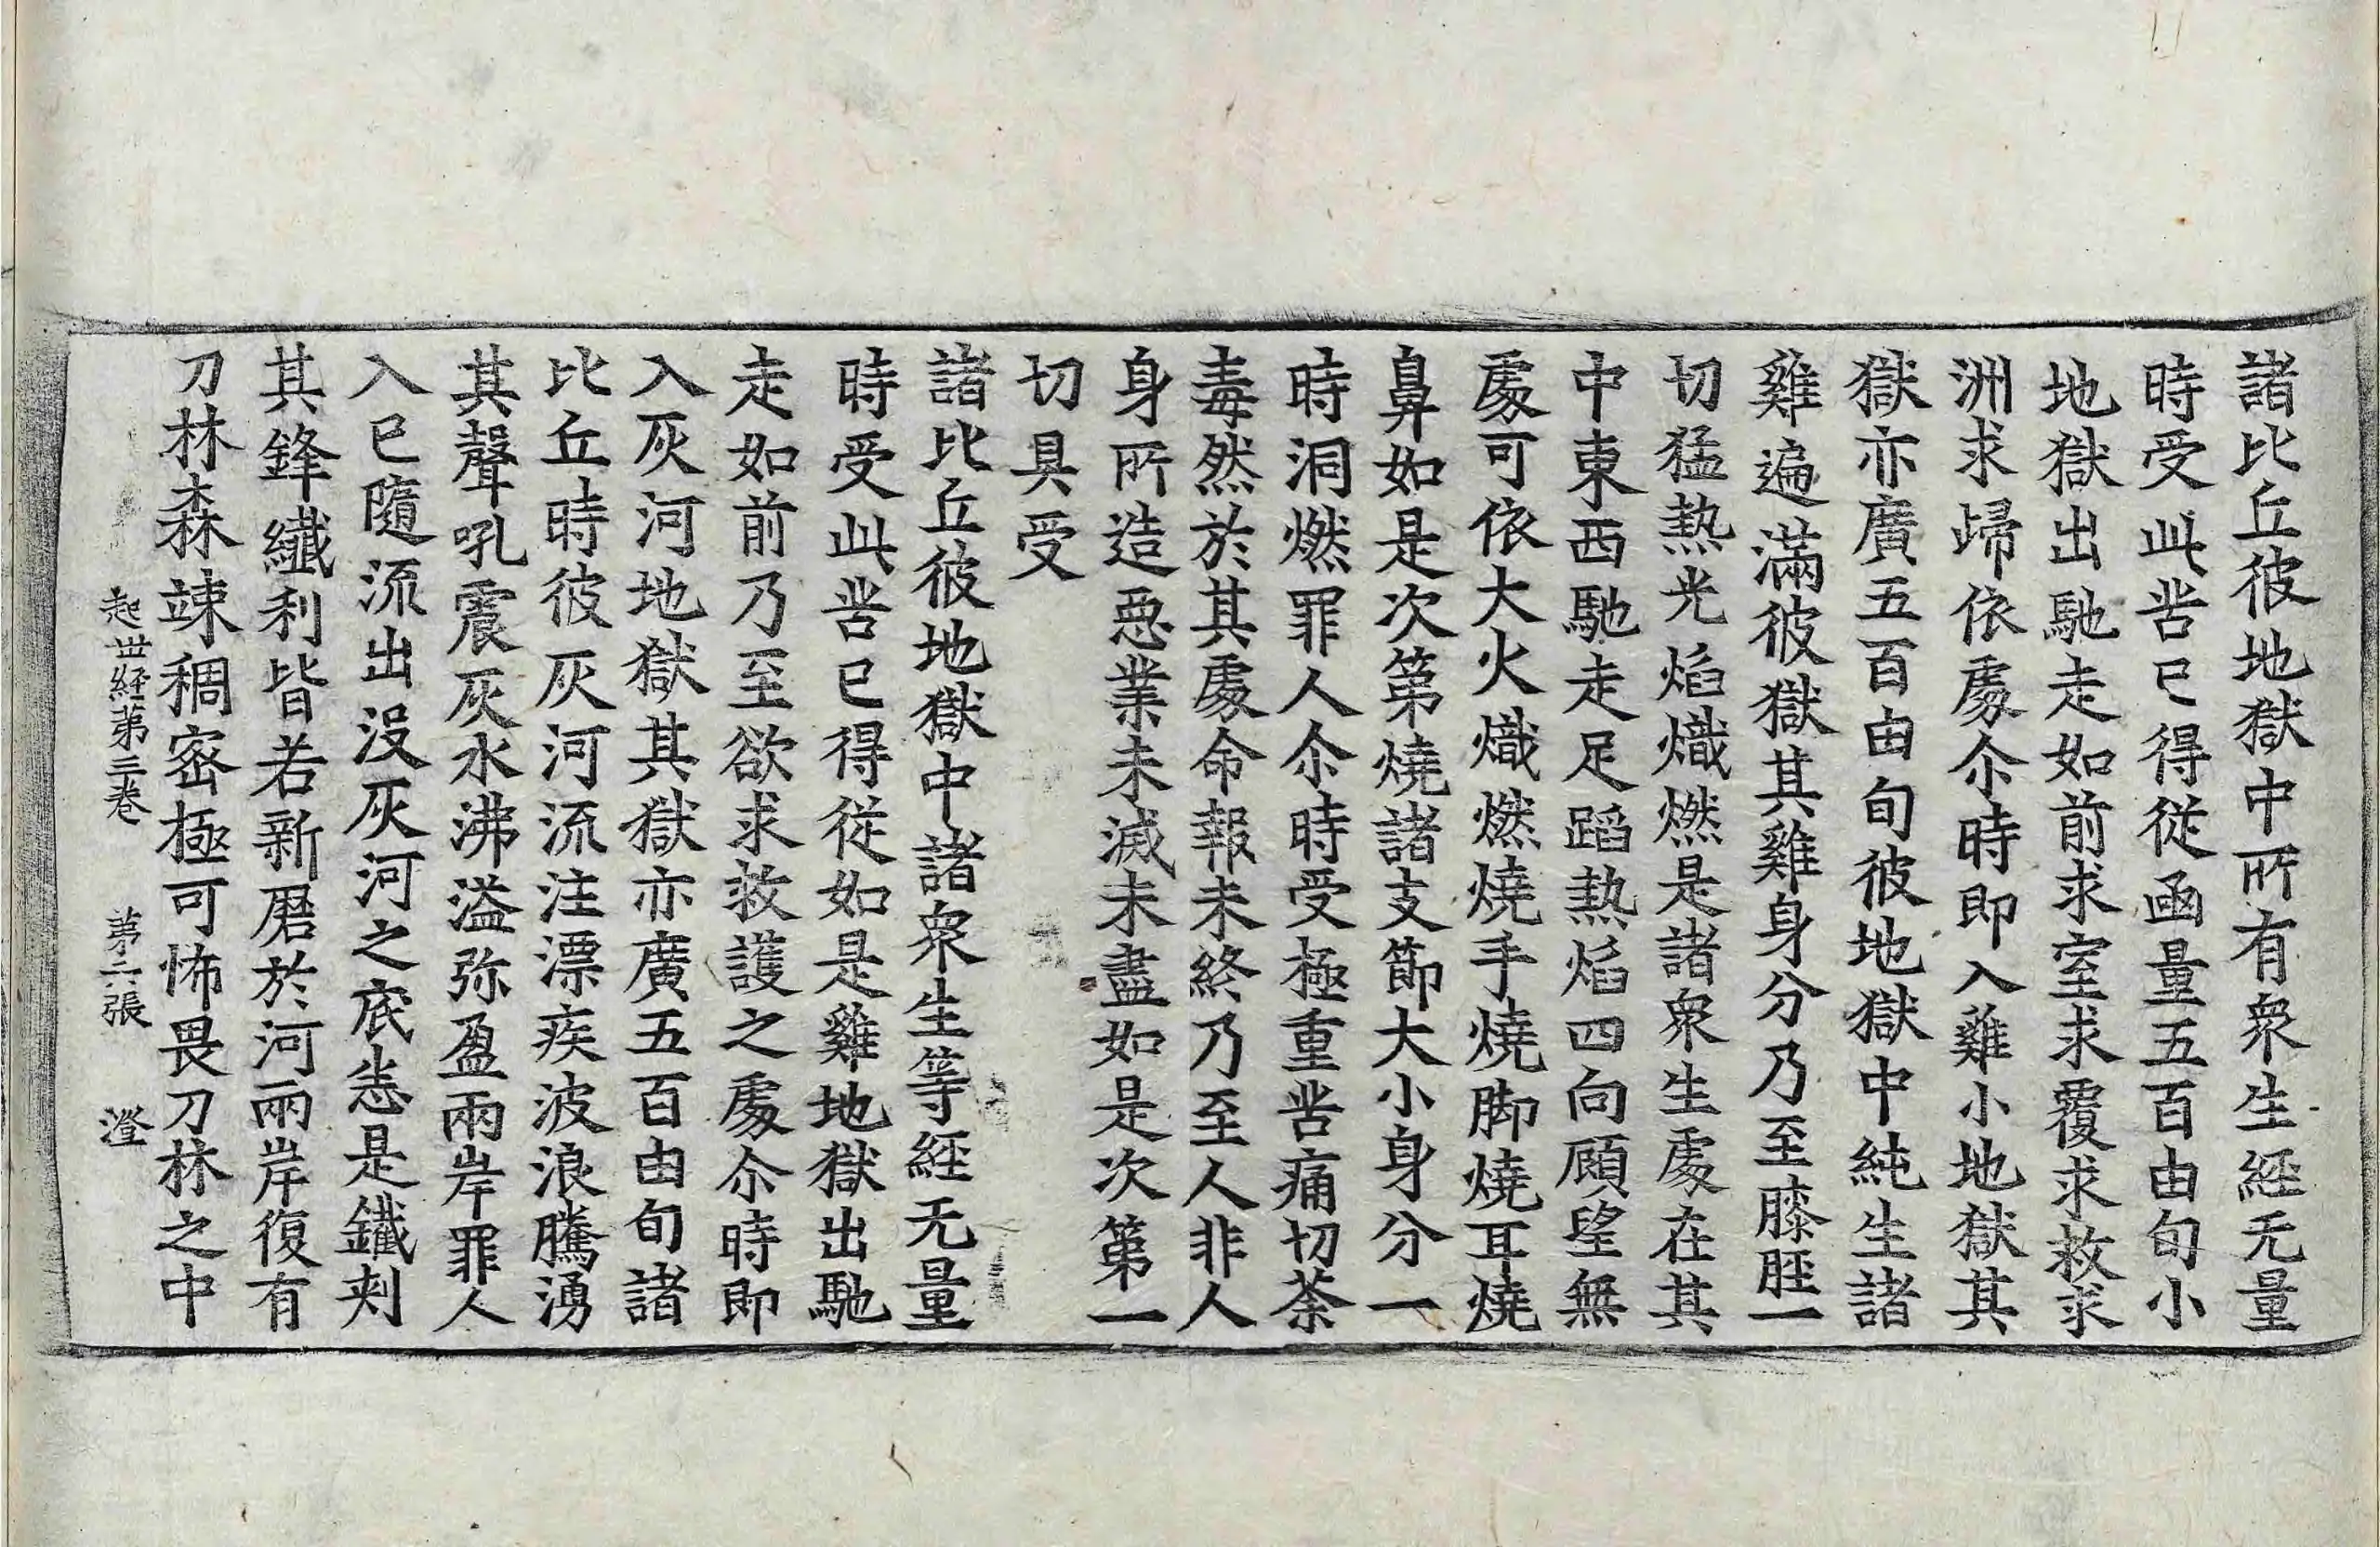 諸比丘彼地獄中所有衆生経无量
時受此苦已得從函量五百由旬小
地獄出馳走如前求室求覆求救求
洲求歸依處尒時即入雞小地獄其
獄亦廣五百由旬彼地獄中純生諸
雞遍滿彼獄其雞身分乃至膝脛一
切猛熱光焰熾燃是諸衆生處在其
中東西馳走足蹈熱焰四向顧望無
處可依大火熾燃燒手燒脚燒耳燒
鼻如是次第燒諸支節大小身分一
時洞燃罪人尒時受極重苦痛切荼
毒然於其處命報未終乃至人非人
身所造惡業未滅未盡如是次第一
切具受
諸比丘彼地獄中諸衆生等経无量
時受此苦已得從如是雞地獄出馳
走如前乃至欲求救護之處尒時即
入灰河地獄其獄亦廣五百由旬諸
比丘時彼灰河流注漂疾波浪騰湧
其聲吼震灰水沸溢弥盈兩岸罪人
入已隨流出沒灰河之底悉是鐵刺
其鋒纖利皆若新磨於河兩岸復有
刀林森竦稠密極可怖畏刀林之中
起世経第三卷 第六張 澄